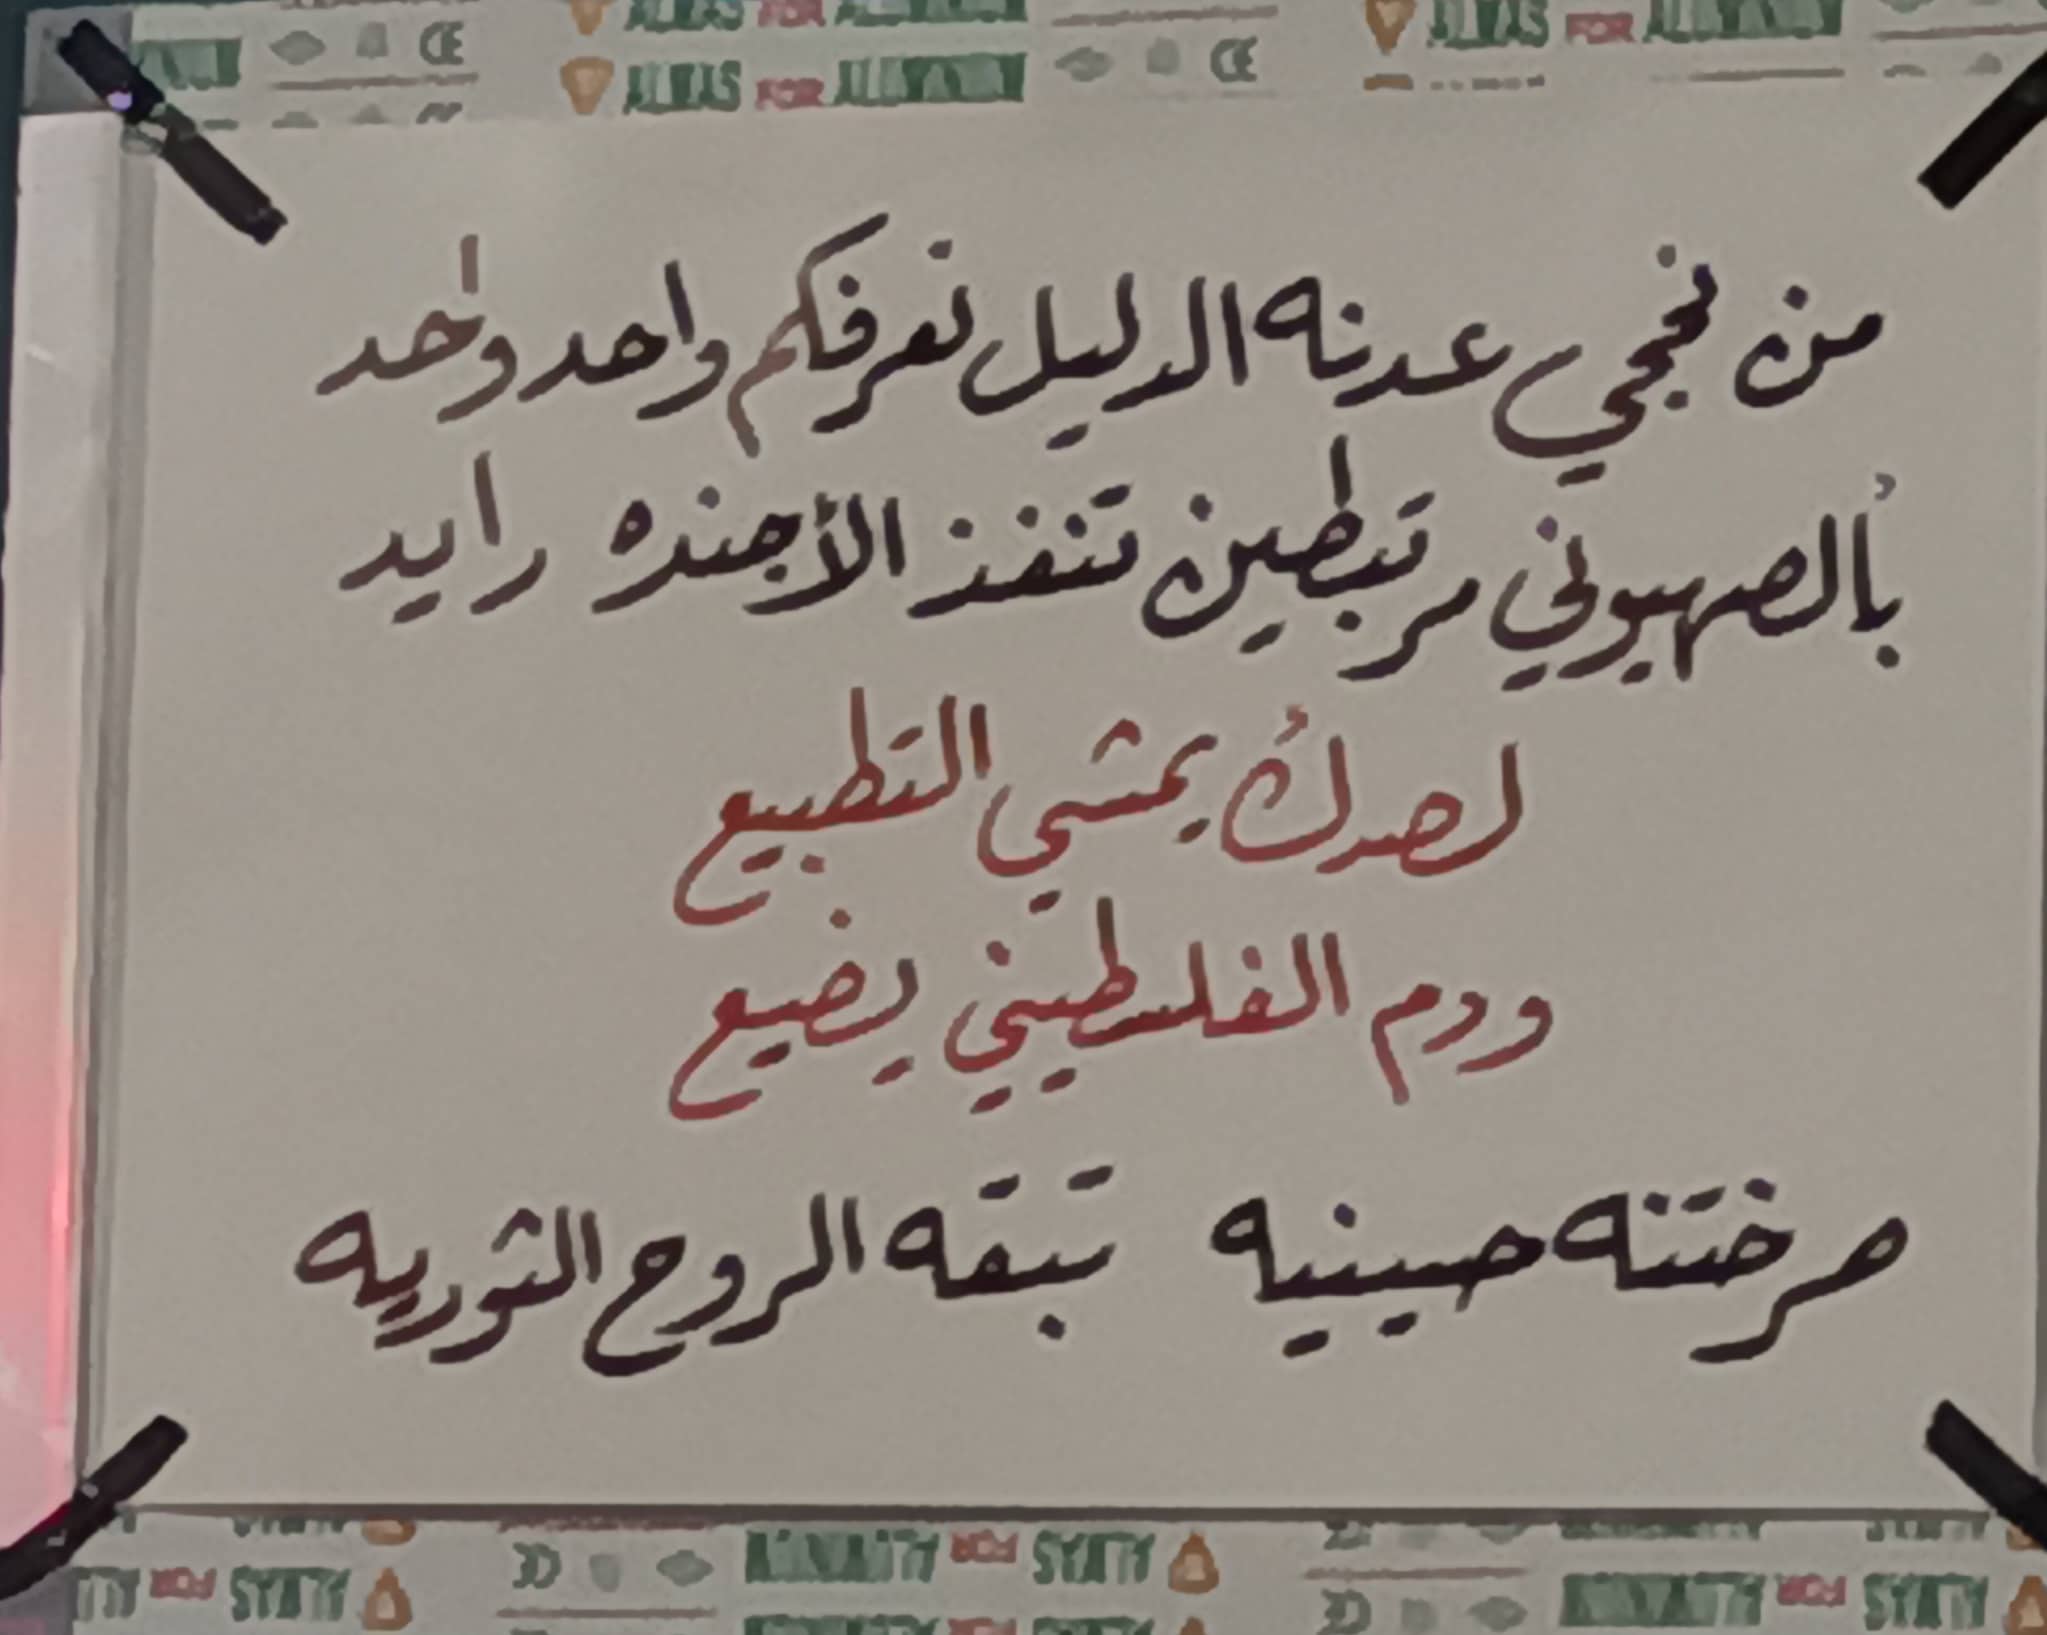 ALMAS FOR ALUMINUM CE
من نحچي عدنه الدليل نعرفكم واحد واحد
بالصهيوني مرتبطين تنفذ الأجنده رايد
لصدك يمشي التطبيع
ودم الفلسطيني يضيع
صرختنه حسينيه تبقه الروح الثوريه